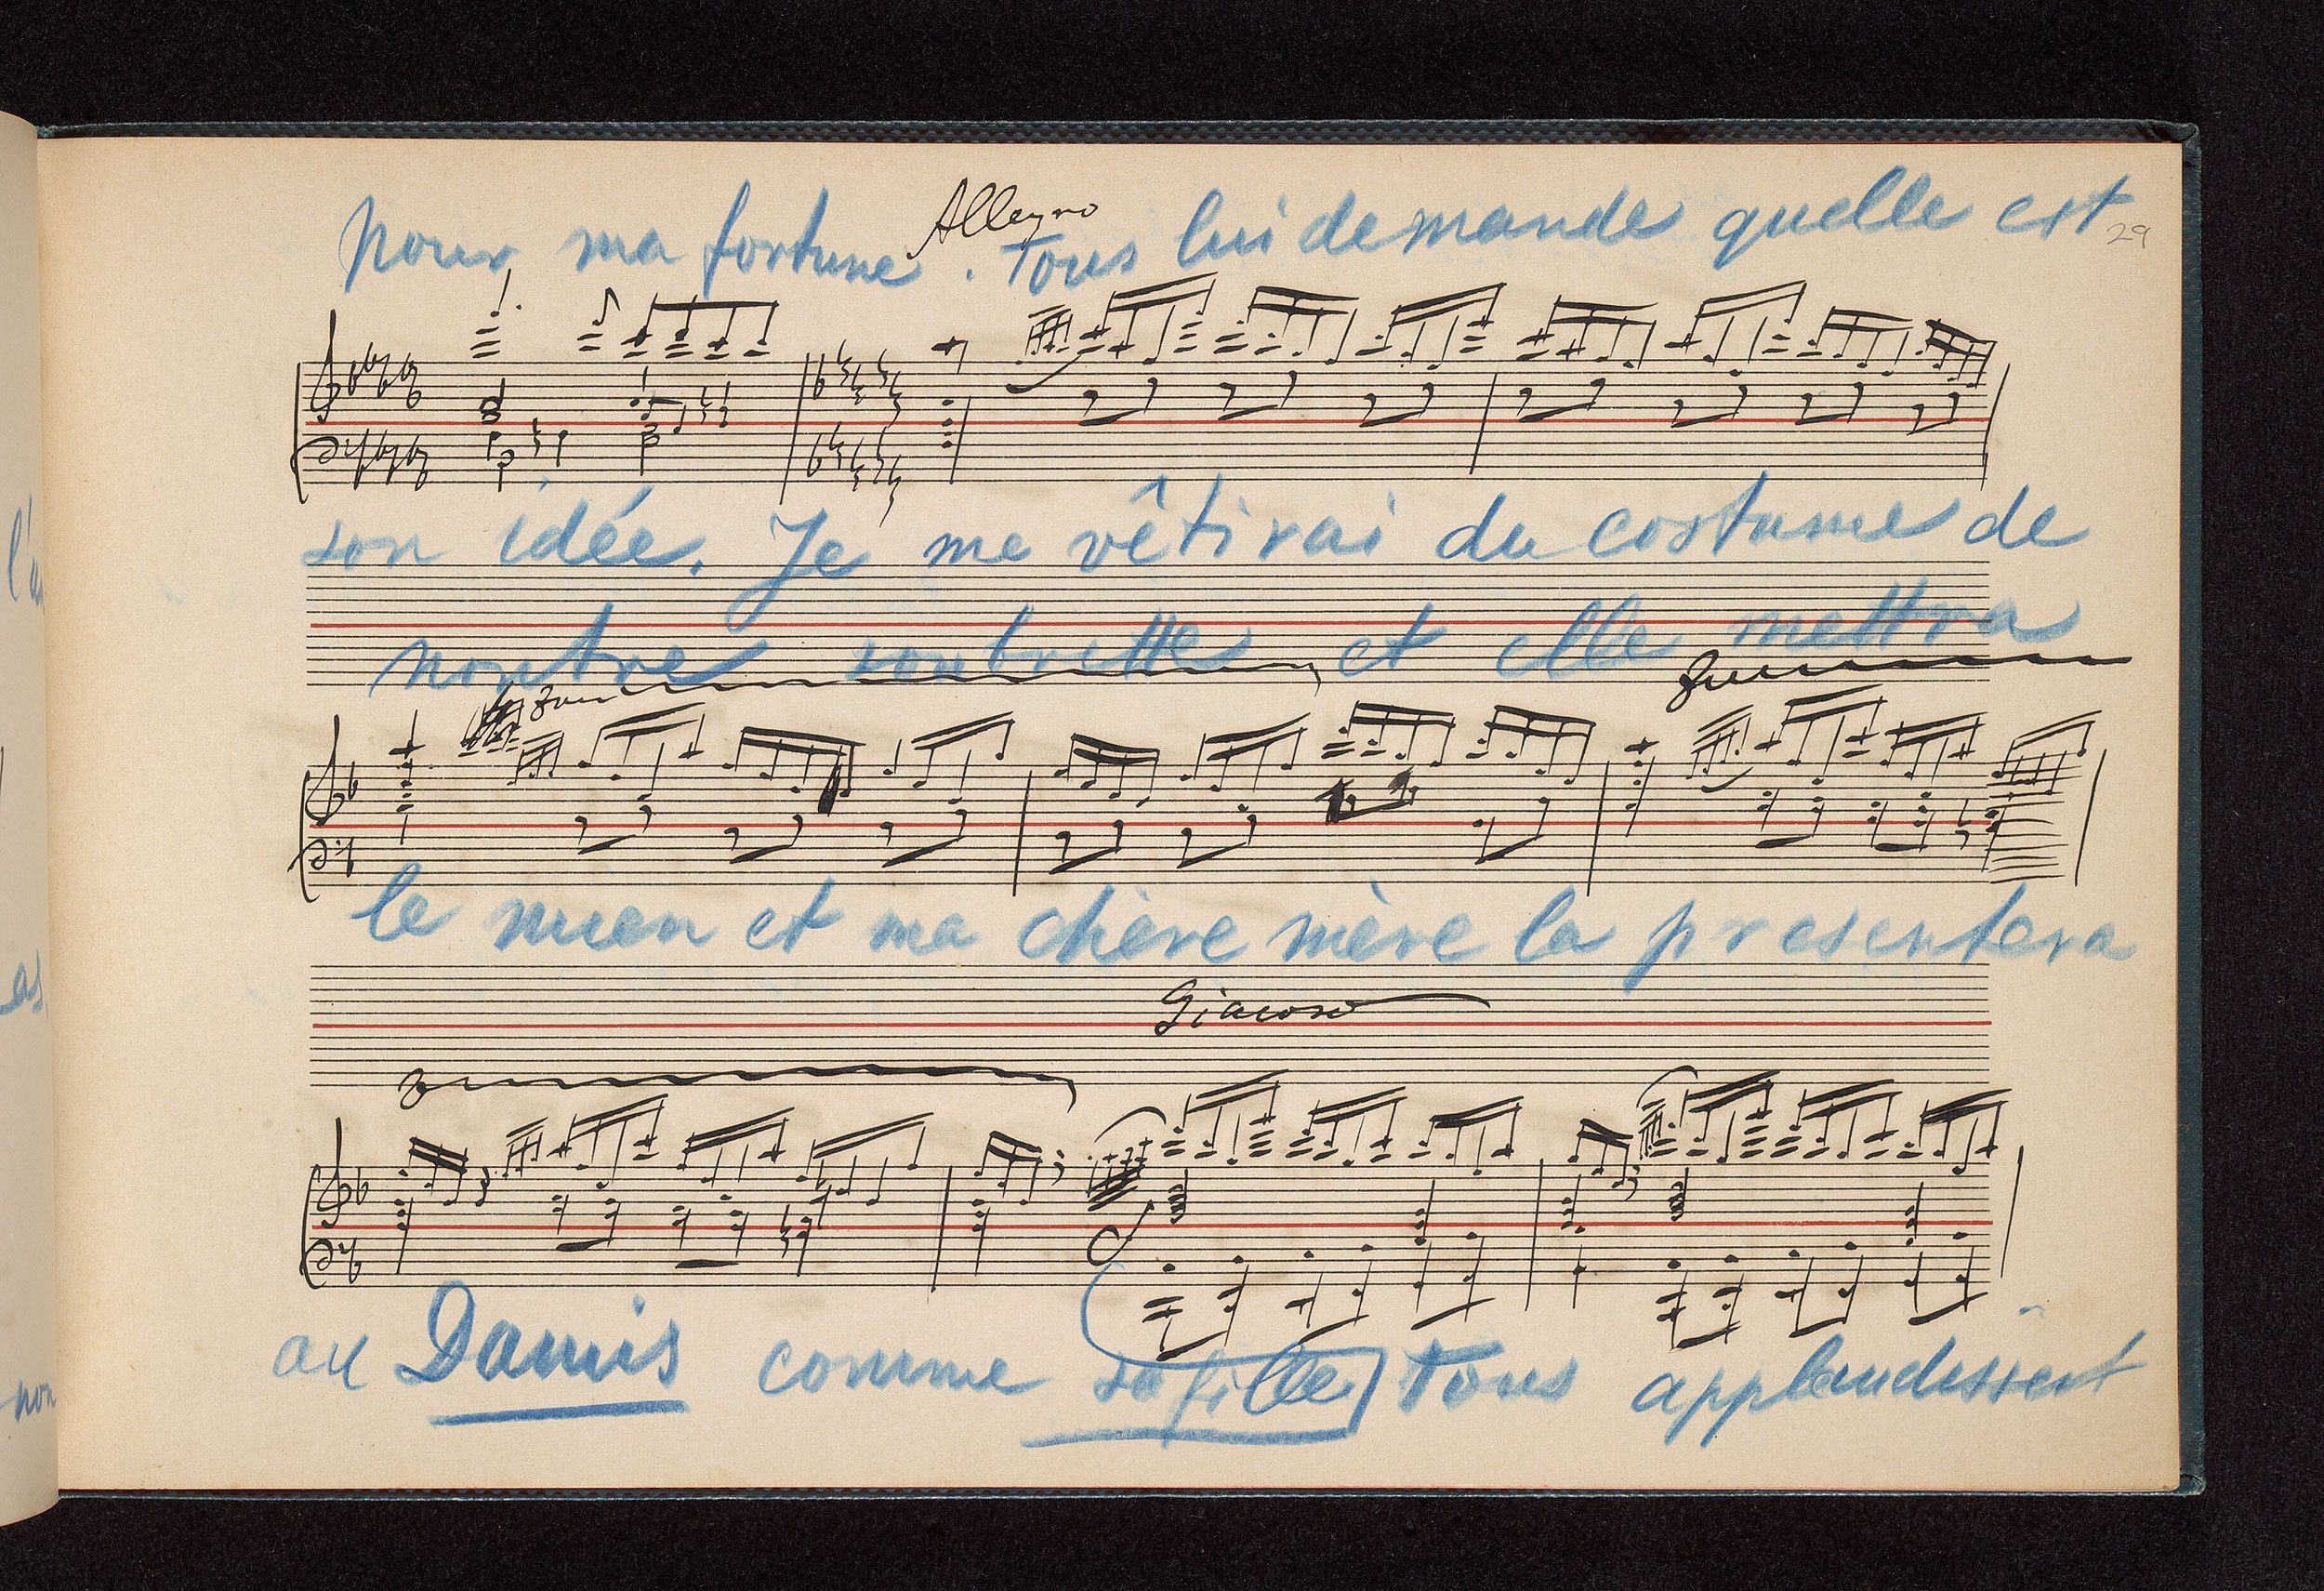 Allegro
pour ma fortune. Tous lui demande quelle est
29
son idée. Je me vêtirai du costume de
noutre soubrette et elle mettra
le mien et ma chère mère la presentera
Giacoso
au Damis comme sa fille] Tous applaudissent
l'a
as
non